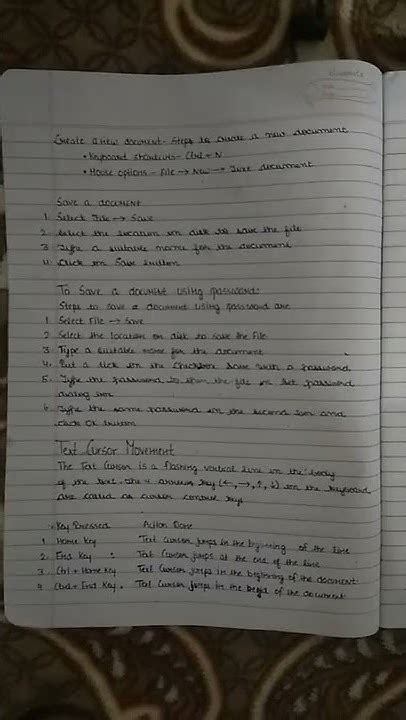 Create a new document - Steps to create a new document
• Keyboard shortcuts - Ctrl + N
• Mouse options - File → New → Text document
Save a document
1. Select File → Save
2. Select the location on disk to save the file
3. Type a suitable name for the document
4. Click on Save button
To Save a document using password:
Steps to save a document using password are
1. Select File → Save
2. Select the location on disk to save the File
3. Type a suitable name for the document
4. Put a tick on the checkbox save with a password
5. Type the password to open the file in set password
dialog box
6. Type the same password in the second box and
click OK button
Text Cursor Movement
The Text Cursor is a flashing vertical line in the body
of the text. The 4 arrow key (←, →, ↑, ↓) on the keyboard
are called as cursor control keys
Key Pressed Action Done
1. Home Key Text cursor jumps in the beginning of the line
2. End Key Text Cursor jumps at the end of the line
3. Ctrl + Home Key Text Cursor jumps in the beginning of the document
4. Ctrl + End Key Text Cursor jumps in the of the document